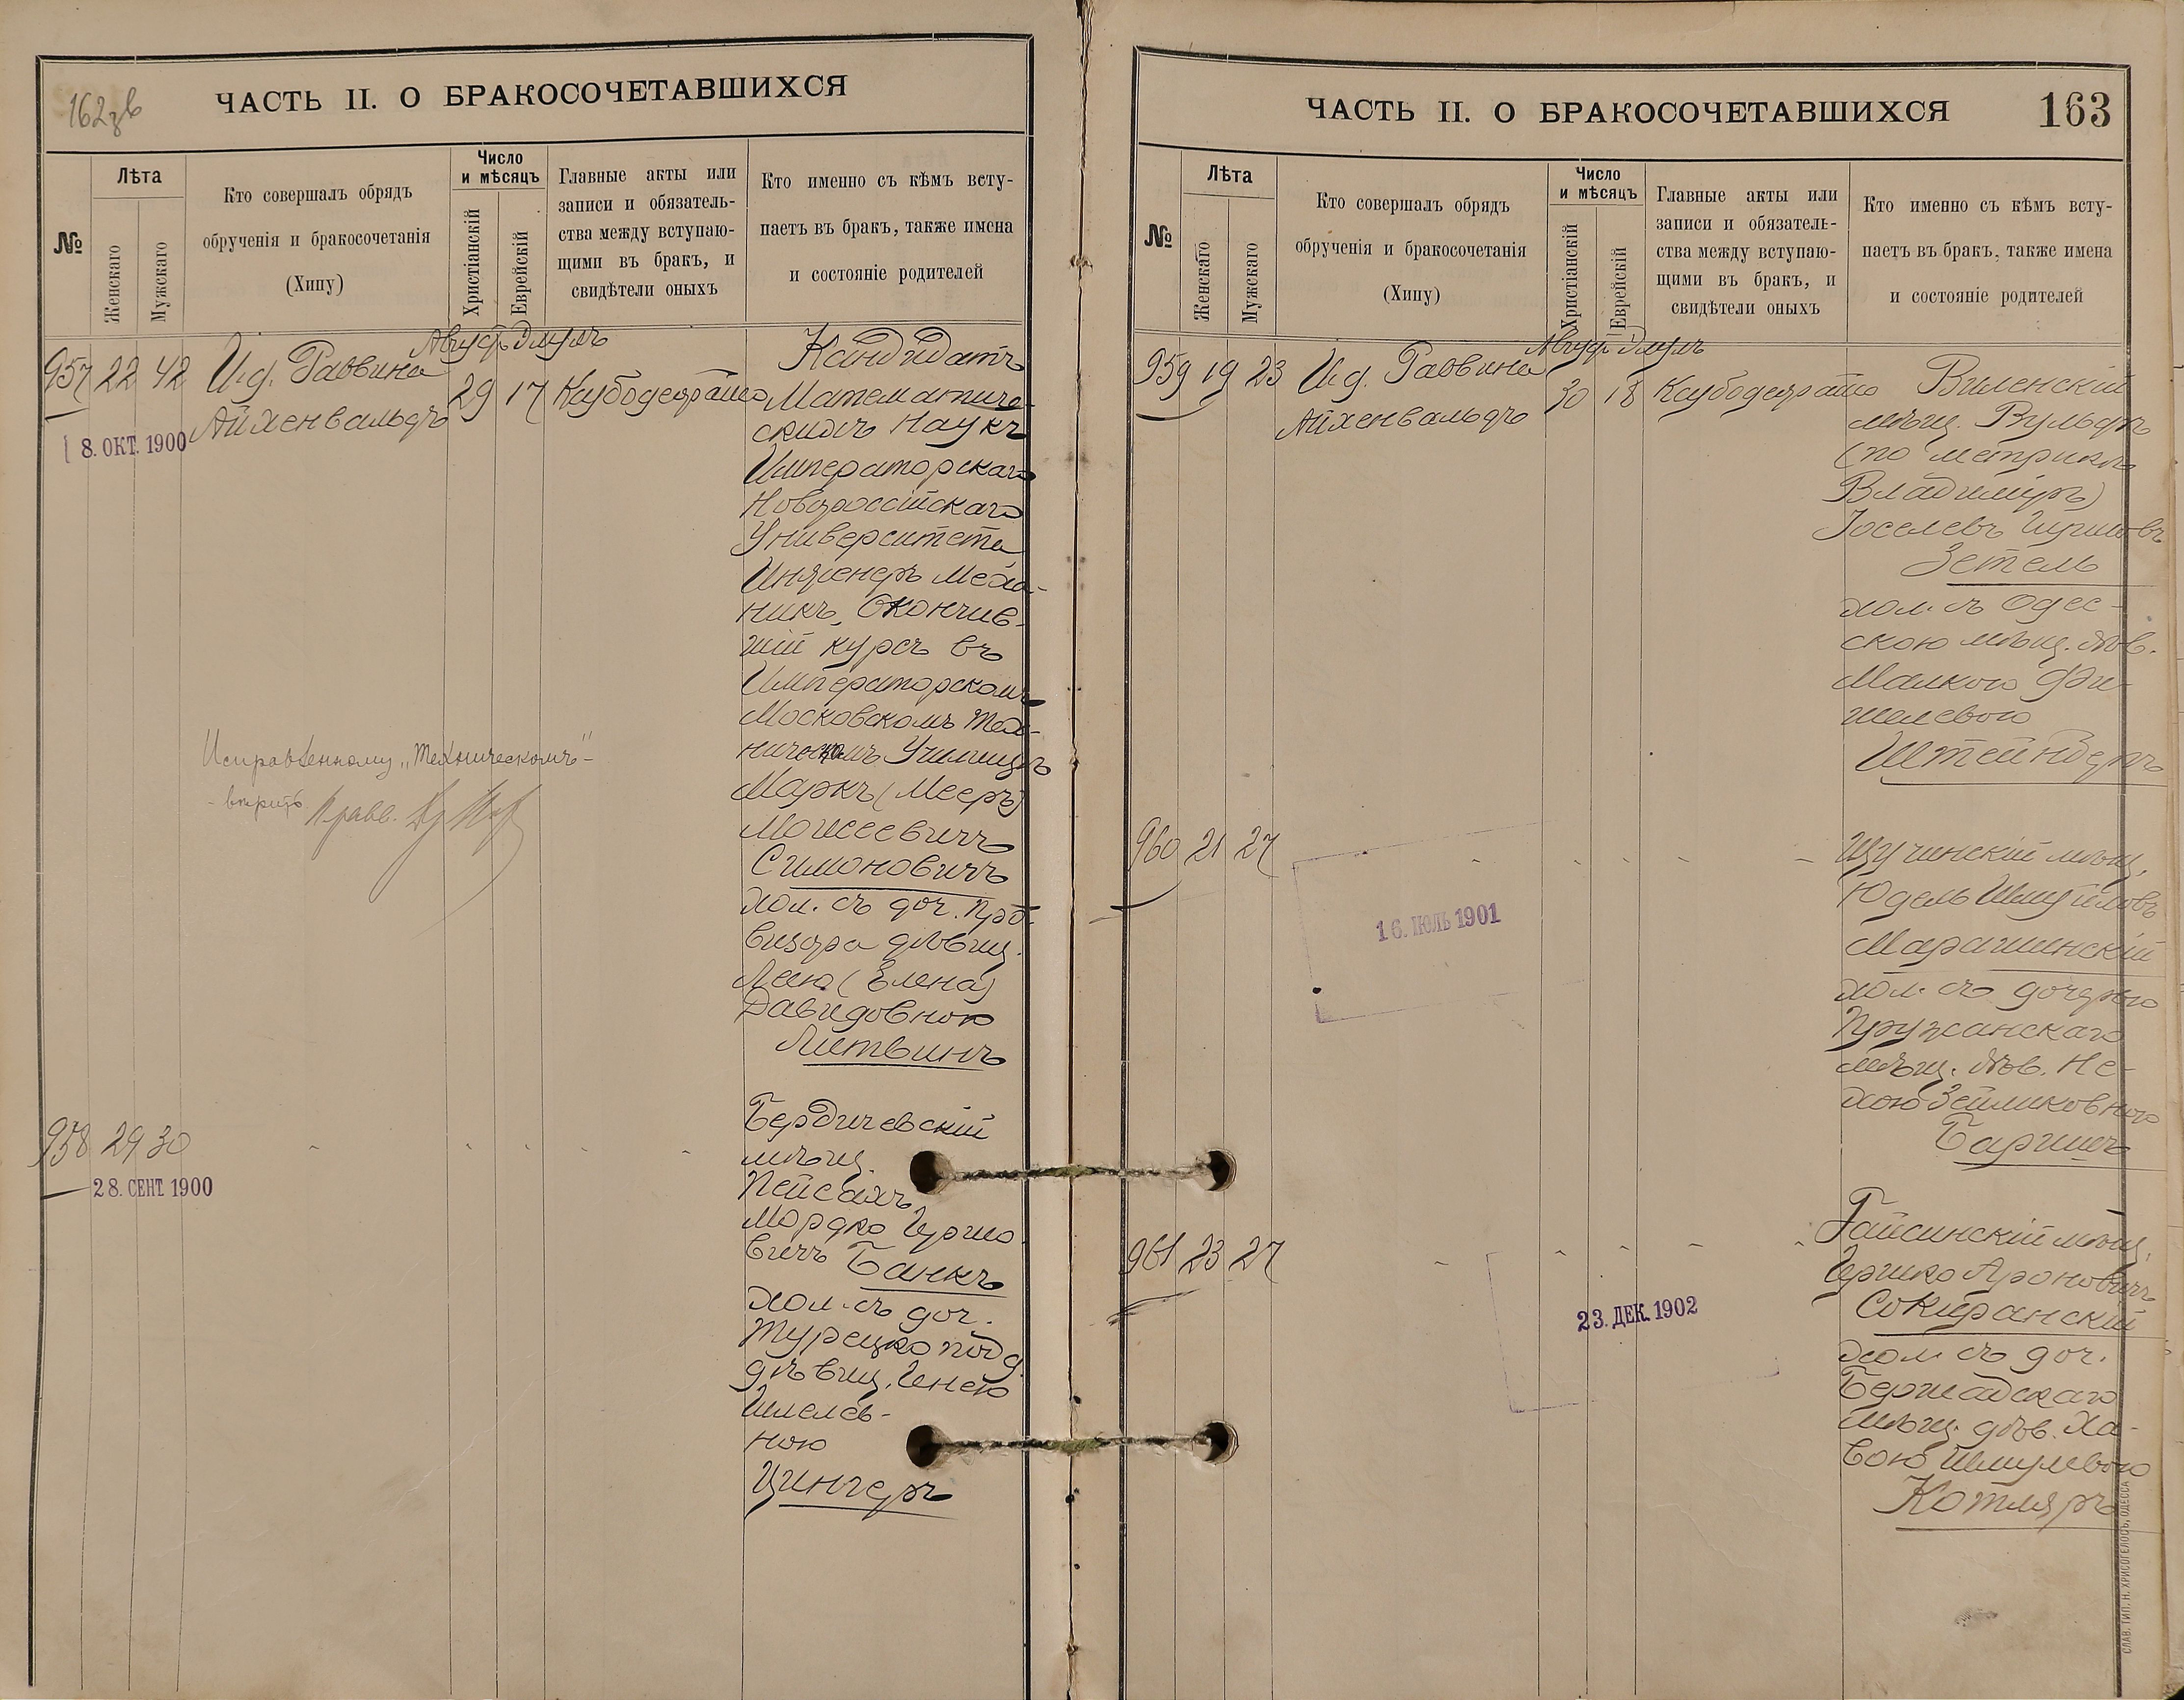 162 зв
ЧАСТЬ II. О БРАКОСОЧЕТАВШИХСЯ
№
Лѣта
Женскаго
Мужскаго
Кто совершалъ обрядъ
обрученія и бракосочетанія
(Хипу)
Число
и мѣсяцъ
Христіанскій
Еврейскій
Главные акты или
записи и обязатель-
ства между вступаю-
щими въ бракъ, и
свидѣтели оныхъ
Кто именно съ кѣмъ всту-
паетъ въ бракъ, также имена
и состояніе родителей
957 22 42 И.д. Раввина Август. Элулъ
Айхенвальдъ 29 17
8. ОКТ. 1900
Кандидатъ
Математиче-
скихъ Наукъ
Императорскаго
Новороссійскаго
Университета
Инженеръ Меха-
никъ, Окончив-
шій курсъ въ
Императорскомъ
Московскомъ Тех-
ническомъ Училищѣ
Маркъ (Мееръ)
Моисеевичъ
Симоновичъ
хол. съ доч. Про-
визора дѣвиц.
Леею (Елена)
Давидовною
Литвинъ
Исправленному „Техническомъ"-
- вѣрить
958 29 30
28. СЕНТ. 1900
Бердичевскій
мѣщ.
Пейсахъ
Мордко Гершо
вичъ Банкъ
хол. съ доч.
Турецко подд.
дѣвиц. Генею
Шмелев-
ною
Цингеръ
ЧАСТЬ II. О БРАКОСОЧЕТАВШИХСЯ
163
№
Лѣта
Женскаго
Мужскаго
Кто совершалъ обрядъ
обрученія и бракосочетанія
(Хипу)
Число
и мѣсяцъ
Христіанскій
Еврейскій
Главные акты или
записи и обязатель-
ства между вступаю-
щими въ бракъ, и
свидѣтели оныхъ
Кто именно съ кѣмъ всту-
паетъ въ бракъ, также имена
и состояніе родителей
959 19 23 И.д. Раввина Август. Элулъ
Айхенвальдъ 30 18
Виленскій
мѣщ. Вульфъ
(по метрикѣ
Владиміръ)
Іоселевъ Гиршовъ
Зетель
хол. съ Одес-
скою мѣщ. дѣв.
Малкою Фи-
шелевою
Штейнбергъ
960 21 27
16. ІЮЛЬ 1901
Щучинскій мѣщ.
Юдель Шмуйловъ
Марашинскій
хол. съ дочерью
Пружанскаго
мѣщ. дѣв. Не-
хою Зейликовною
Баришъ
961 23 27
23. ДЕК. 1902
Гайсинскій мѣщ.
Гершко Ароновичъ
Сокирянскій
хол. съ доч.
Бершадскаго
мѣщ. дѣв. Ха-
вою Шмулевою
Котляръ
СЛАВ. ТИП. Н. ХРИСОГЕЛОСЪ, ОДЕССА